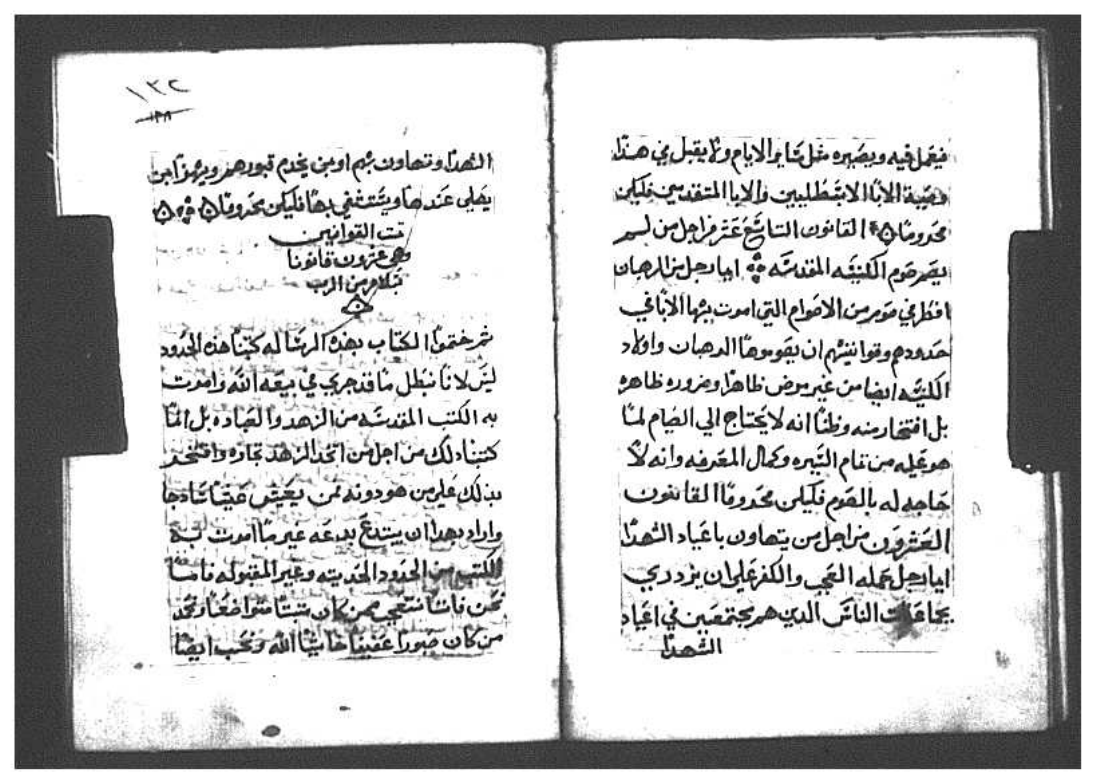 فيعمل فيه ويصيره مثل ساير الايام ولا يقبل في هذا
وصية الابا الاسطليين والابا المتقدمين فليكن
محروما القانون التاسع عشر من اجل من لم
يصم صوم الكنيسه المقدسه ايما رجل من الرهبان
افطر في صوم من الاصوام التي امرت بها الابا في
حدودهم وقوانينهم ان يصوموها الرهبان واولاد
الكنيسه ايضا من غير مرض ظاهر او ضروره ظاهره
بل افتخار منه وظنا انه لا يحتاج الي الصيام لما
هو عليه من تمام السيره وكمال المعرفه وانه لا
حاجه له بالصوم فليكن محروما القانون
العشرون من اجل من يتهاون باعياد الشهدا
ايما رجل حمله العجب والكفر علي ان يزدري
بجماعات الناس الدين هم مجتمعين في اعياد
الشهدا
١٣٢
١٣٨
الشهدا وتهاون بهم او بمن يخدم قبورهم ويهزا بمن
يصلي عندها ويستشفي بها فليكن محروما
تمت القوانين
وهي عشرون قانونا
بسلام من الرب
ثم ختموا الكتاب بهذه الرساله كتبنا هذه الحدود
ليس لاننا نبطل ما قد جري في بيعه الله وامرت
به الكتب المقدسه من الزهد والعباده بل انما
كتبنا دلك من اجل من اتخد الزهد تجاره وافتخر
بدلك علي من هو دونه ممن يعيش عيشا سادجا
واراد بهدا ان يبتدع بدعه غير ما امرت به
الكتب من الحدود الحديته وغير المقبوله فاما
نحن فاننا نتعجب ممن كان متواضعا ونمجد
من كان صبورا عفيفا خاشيا الله ونحب ايضا